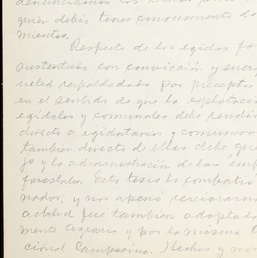 denunciamos los
quien debía tener conocimiento
mientos.
Respecto de los egidos
sustentado con convicción y
usted respaldada por preceptos
en el sentido de que la explotación
egidales y comunales debe
directo a egidatarios y comuneros
tambien directo de ellos debe
jo y la administración de las
forestales. Esta tesis la combatió
nador, y nos apenó
actitud fue tambien adoptada
mento Agrario y por la misma
cional Campesina. Hechos y